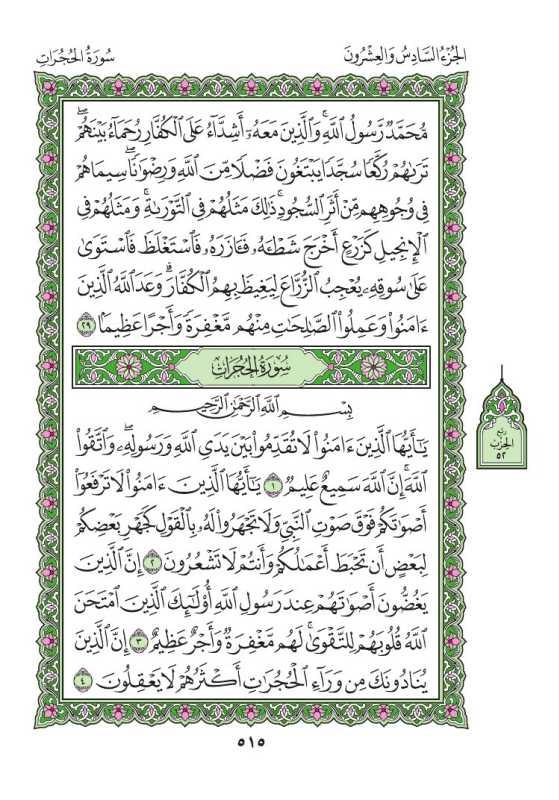 الجُزْءُ السَّادِسُ وَالعِشْرُونَ
سُورَةُ الحُجُرَاتِ
مُّحَمَّدٞ رَّسُولُ ٱللَّهِۚ وَٱلَّذِينَ مَعَهُۥٓ أَشِدَّآءُ عَلَى ٱلۡكُفَّارِ رُحَمَآءُ بَيۡنَهُمۡۖ
تَرَىٰهُمۡ رُكَّعٗا سُجَّدٗا يَبۡتَغُونَ فَضۡلٗا مِّنَ ٱللَّهِ وَرِضۡوَٰنٗاۖ سِيمَاهُمۡ
فِي وُجُوهِهِم مِّنۡ أَثَرِ ٱلسُّجُودِۚ ذَٰلِكَ مَثَلُهُمۡ فِي ٱلتَّوۡرَىٰةِۚ وَمَثَلُهُمۡ فِي
ٱلۡإِنجِيلِ كَزَرۡعٍ أَخۡرَجَ شَطۡـَٔهُۥ فَـَٔازَرَهُۥ فَٱسۡتَغۡلَظَ فَٱسۡتَوَىٰ
عَلَىٰ سُوقِهِۦ يُعۡجِبُ ٱلزُّرَّاعَ لِيَغِيظَ بِهِمُ ٱلۡكُفَّارَۗ وَعَدَ ٱللَّهُ ٱلَّذِينَ
ءَامَنُواْ وَعَمِلُواْ ٱلصَّٰلِحَٰتِ مِنۡهُم مَّغۡفِرَةٗ وَأَجۡرًا عَظِيمَۢا ٢٩
سُورَةُ الحُجُرَاتِ
بِسۡمِ ٱللَّهِ ٱلرَّحۡمَٰنِ ٱلرَّحِيمِ
يَٰٓأَيُّهَا ٱلَّذِينَ ءَامَنُواْ لَا تُقَدِّمُواْ بَيۡنَ يَدَيِ ٱللَّهِ وَرَسُولِهِۦۖ وَٱتَّقُواْ
ٱللَّهَۚ إِنَّ ٱللَّهَ سَمِيعٌ عَلِيمٞ ١ يَٰٓأَيُّهَا ٱلَّذِينَ ءَامَنُواْ لَا تَرۡفَعُوٓاْ
أَصۡوَٰتَكُمۡ فَوۡقَ صَوۡتِ ٱلنَّبِيِّ وَلَا تَجۡهَرُواْ لَهُۥ بِٱلۡقَوۡلِ كَجَهۡرِ بَعۡضِكُمۡ
لِبَعۡضٍ أَن تَحۡبَطَ أَعۡمَٰلُكُمۡ وَأَنتُمۡ لَا تَشۡعُرُونَ ٢ إِنَّ ٱلَّذِينَ
يَغُضُّونَ أَصۡوَٰتَهُمۡ عِندَ رَسُولِ ٱللَّهِ أُوْلَٰٓئِكَ ٱلَّذِينَ ٱمۡتَحَنَ
ٱللَّهُ قُلُوبَهُمۡ لِلتَّقۡوَىٰۚ لَهُم مَّغۡفِرَةٞ وَأَجۡرٌ عَظِيمٌ ٣ إِنَّ ٱلَّذِينَ
يُنَادُونَكَ مِن وَرَآءِ ٱلۡحُجُرَٰتِ أَكۡثَرُهُمۡ لَا يَعۡقِلُونَ ٤
رُبع
الحِزْب
٥٢
٥١٥